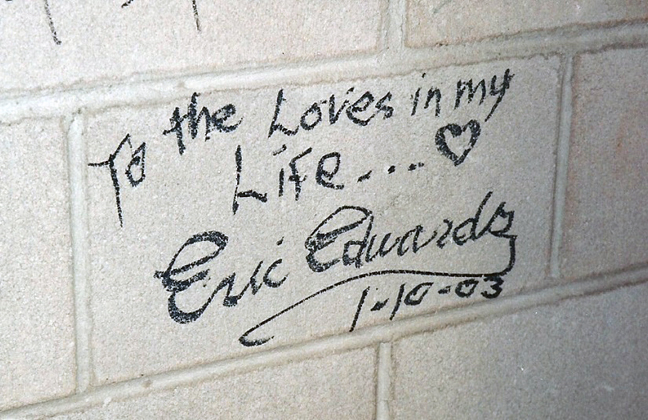 To the Loves in my
Life....
Eric Edwards
1-10-03